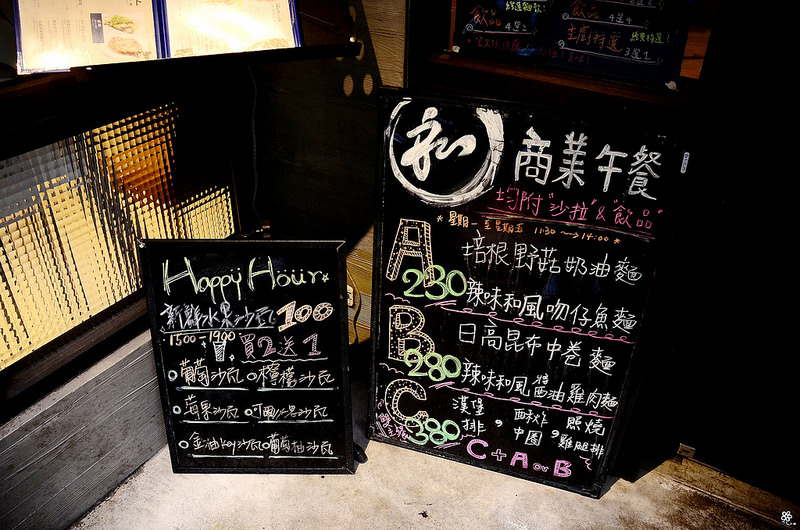 Happy Hour
新鮮水果沙瓦 100
1500~1900 買2送1
葡萄沙瓦 檸檬沙瓦
蘋果沙瓦
金柚key沙瓦 葡萄柚沙瓦
飲品 4選2
飲品 4選4
主廚特選 3選1
和 商業午餐
均附"沙拉"&"飲品"
*星期一至星期五 11:30~14:00*
A 230
培根野菇奶油麵
辣味和風吻仔魚麵
B 280
日高昆布中卷麵
辣味和風醬油雞肉麵
C 380
漢堡排,
中圈,
照燒雞腿排
C+A or B